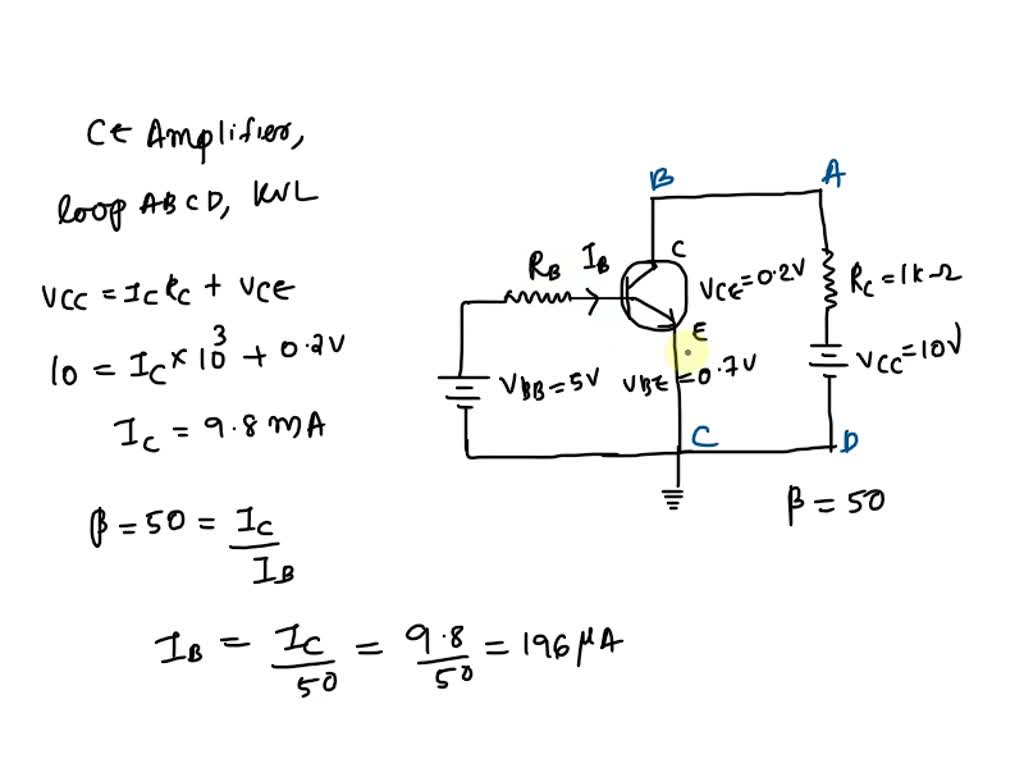 CE Amplifier,
loop ABCD, KVL
VCC = IC RC + VCE
10 = IC × 10³ + 0.2V
IC = 9.8 mA
β = 50 = IC / IB
IB = IC / 50 = 9.8 / 50 = 196 μA
B
A
RB
IB
C
VCE = 0.2V
RC = 1k Ω
E
VBB = 5V
VBE = 0.7V
VCC = 10V
C
D
β = 50